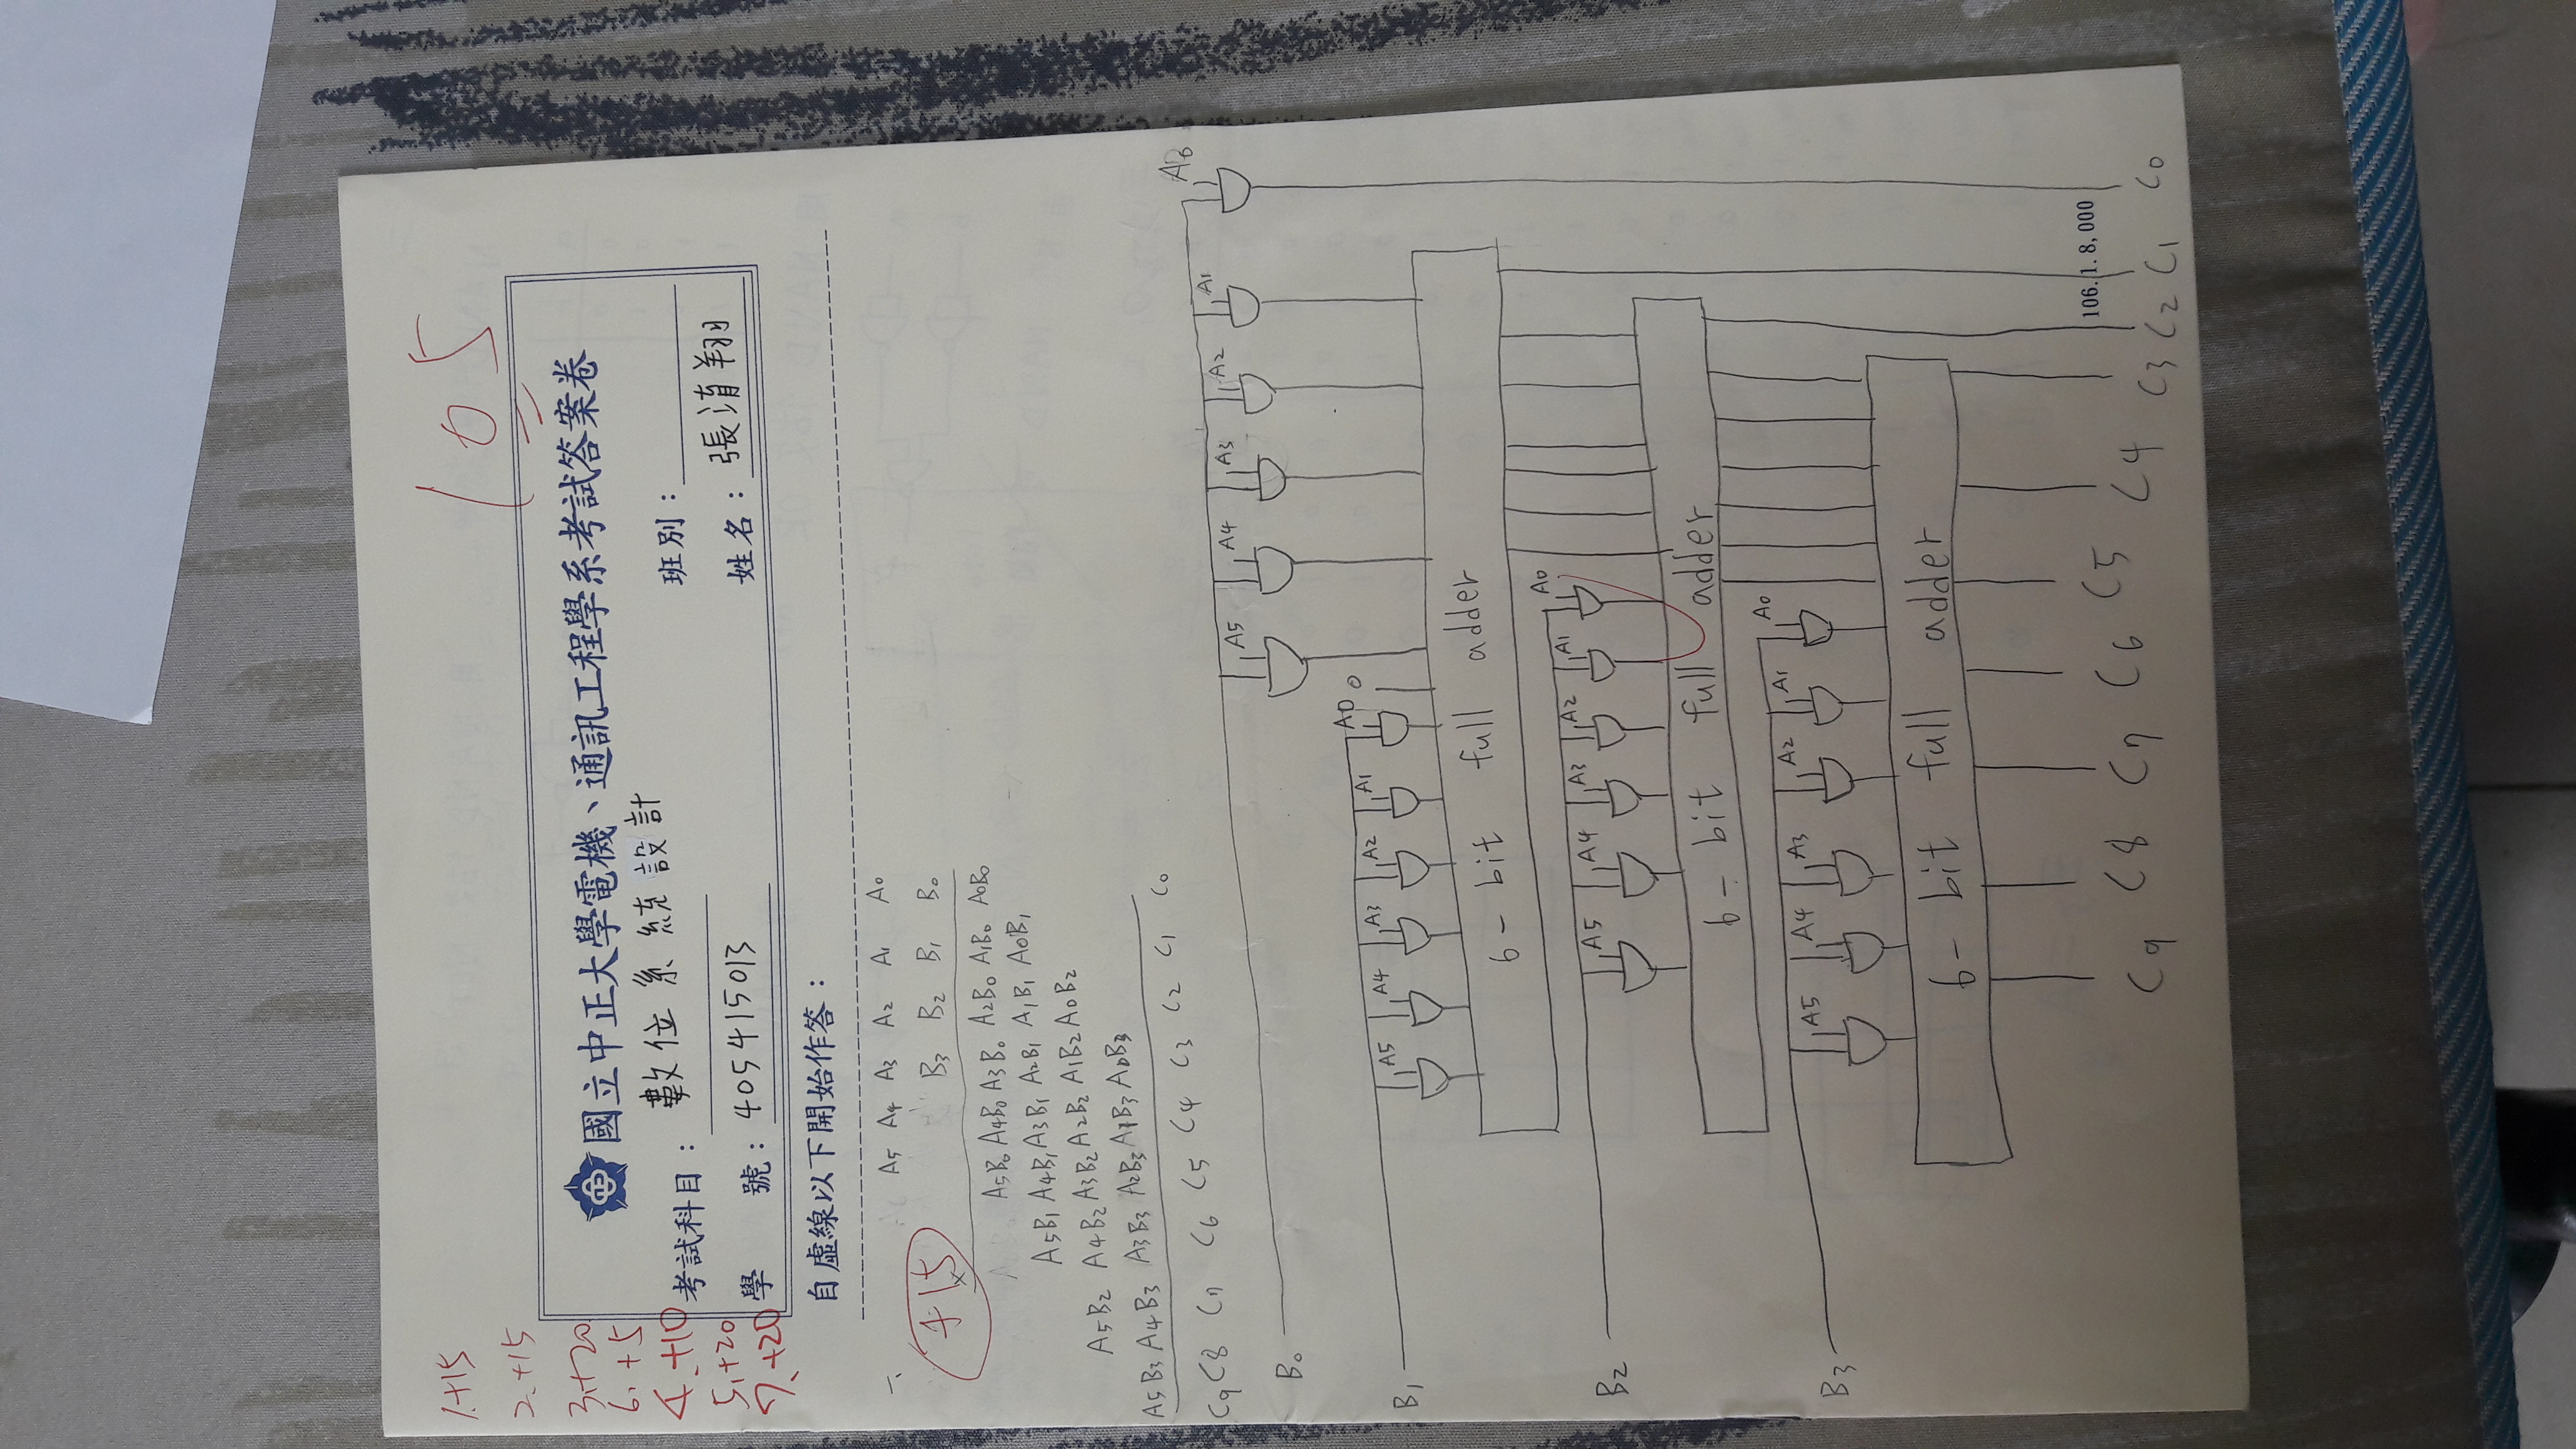 105
1.+15
2.+15
3.+20
6.+5
4.+10
5.+20
7.+20
國立中正大學電機、通訊工程學系考試答案卷
考試科目： 數位系統設計
班別：
學 號： 405415013
姓名： 張淯翔
自虛線以下開始作答：
一、
+15
A5 A4 A3 A2 A1 A0
× B3 B2 B1 B0
A5B0 A4B0 A3B0 A2B0 A1B0 A0B0
A5B1 A4B1 A3B1 A2B1 A1B1 A0B1
A5B2 A4B2 A3B2 A2B2 A1B2 A0B2
A5B3 A4B3 A3B3 A2B3 A1B3 A0B3
C9 C8 C7 C6 C5 C4 C3 C2 C1 C0
B0 A5 A4 A3 A2 A1 A0
B1 A5 A4 A3 A2 A1 A0 0
6-bit full adder
B2 A5 A4 A3 A2 A1 A0
6-bit full adder
B3 A5 A4 A3 A2 A1 A0
6-bit full adder
106.1.8,000
C9 C8 C7 C6 C5 C4 C3 C2 C1 C0